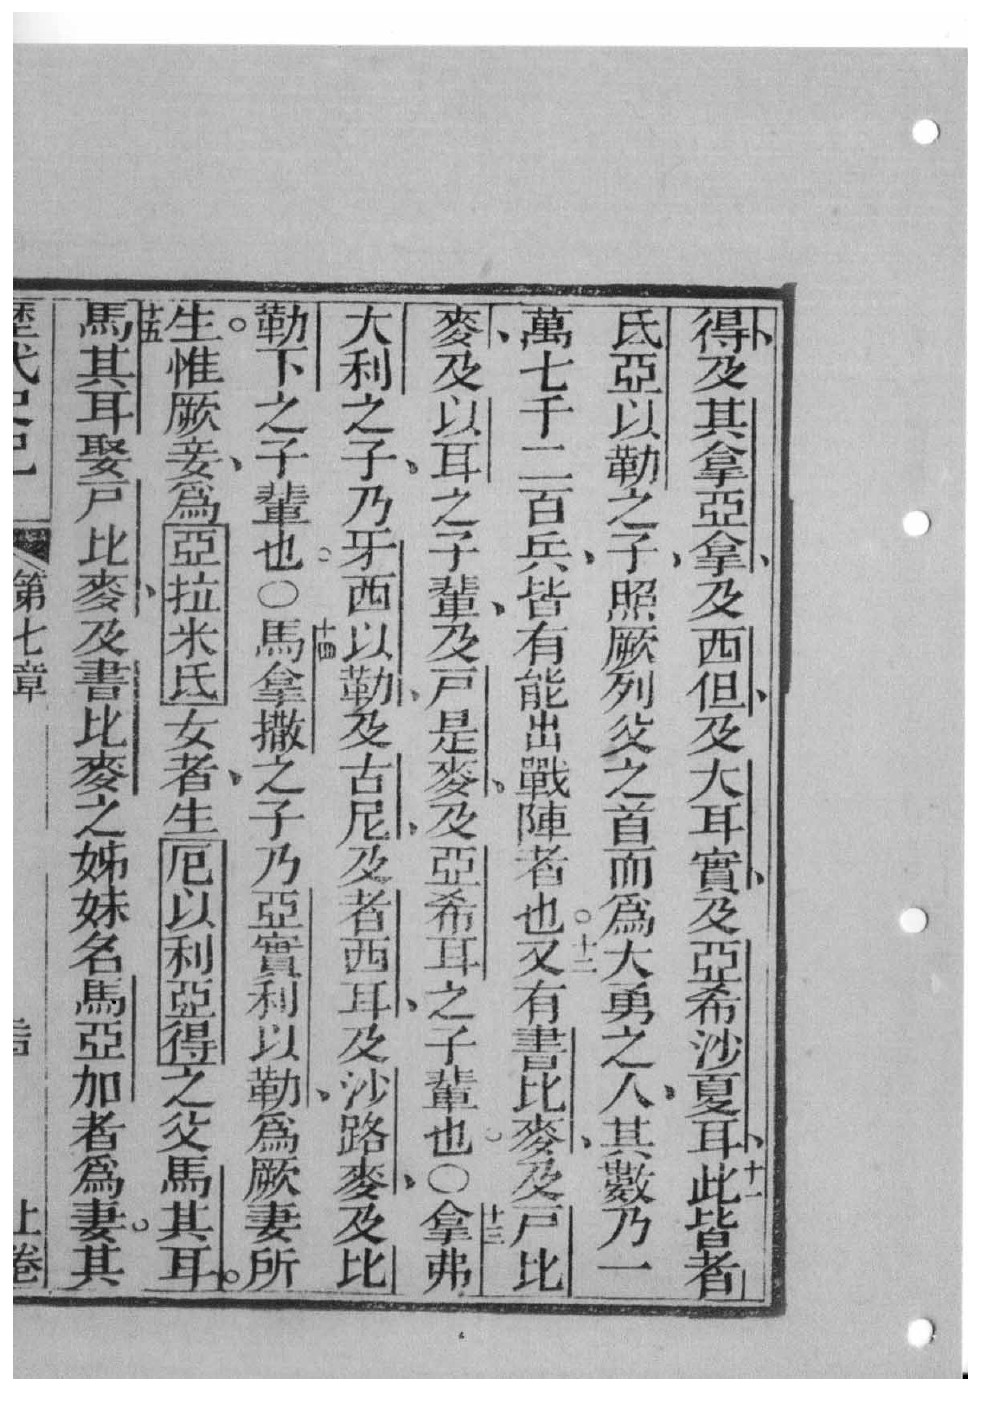 得及其拿亞拿及西但及大耳實及亞希沙夏耳十一此皆者
氏亞以勒之子照厥列父之首而爲大勇之人其數乃一
萬七千二百兵皆有能出戰陣者也十二又有書比麥及戸比
麥及以耳之子輩及戸是麥及亞希耳之子輩也〇十三拿弗
大利之子乃牙西以勒及古尼及者西耳及沙路麥及比
勒下之子輩也〇十四馬拿撒之子乃亞實利以勒爲厥妻所
生惟厥妾爲亞拉米氏女者生厄以利亞得之父馬其耳
十五馬其耳娶戸比麥及書比麥之姊妹名馬亞加者爲妻其
歷代史記 第七章 上卷